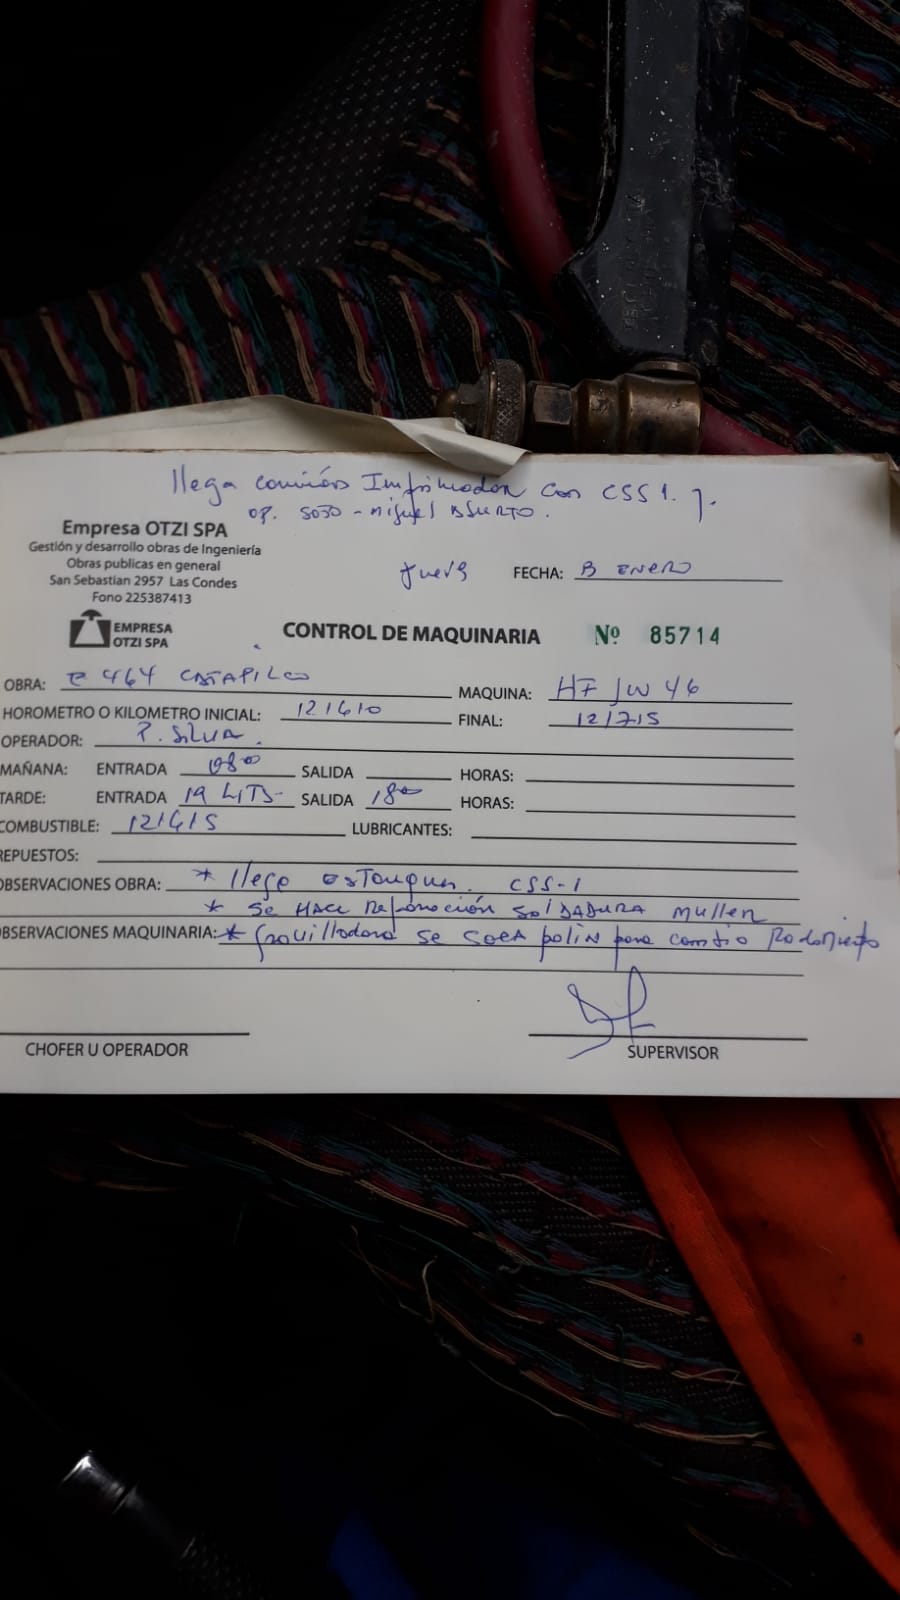 llega camión Imprimador con CSS 1.
OP. SOTO - Miguel ASURTO.
Empresa OTZI SPA
Gestión y desarrollo obras de Ingeniería
Obras publicas en general
San Sebastian 2957 Las Condes
Fono 225387413
EMPRESA
OTZI SPA
FECHA: ENERO
CONTROL DE MAQUINARIA Nº 85714
OBRA: E 464 CATAPILCO
MAQUINA: HF JW 46
HOROMETRO O KILOMETRO INICIAL: 121610
FINAL: 121715
OPERADOR: P. SILVA.
MAÑANA: ENTRADA 08⁰⁰ SALIDA HORAS:
TARDE: ENTRADA 19 LITS- SALIDA 18⁰⁰ HORAS:
COMBUSTIBLE: 121615 LUBRICANTES:
REPUESTOS:
OBSERVACIONES OBRA: * llega estanque. CSS-1
* Se HACE Reparación SOLDADURA Muller
OBSERVACIONES MAQUINARIA: * se saca polin para cambio Rodamiento
CHOFER U OPERADOR
SUPERVISOR